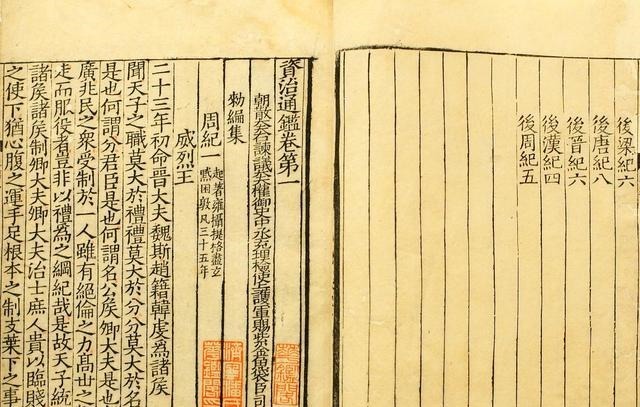 後梁紀六
後唐紀八
後晉紀六
後漢紀四
後周紀五
資治通鑑卷第一
朝散大夫右諫議大夫權御史中丞充理檢使上護軍賜紫金魚袋臣司
勑編集
周紀一 起著雍攝提格盡玄
黓困敦凡三十五年
威烈王
二十三年初命晉大夫魏斯趙籍韓虔爲諸侯
聞天子之職莫大於禮禮莫大於分分莫大於名
是也何謂分君臣是也何謂名公侯卿大夫是也
廣兆民之衆受制於一人雖有絕倫之力高世之
走而服役者豈非以禮爲之綱紀哉是故天子統
諸侯諸侯制卿大夫卿大夫治士庶人貴以臨賤
之使下猶心腹之運手足根本之制支葉下之事